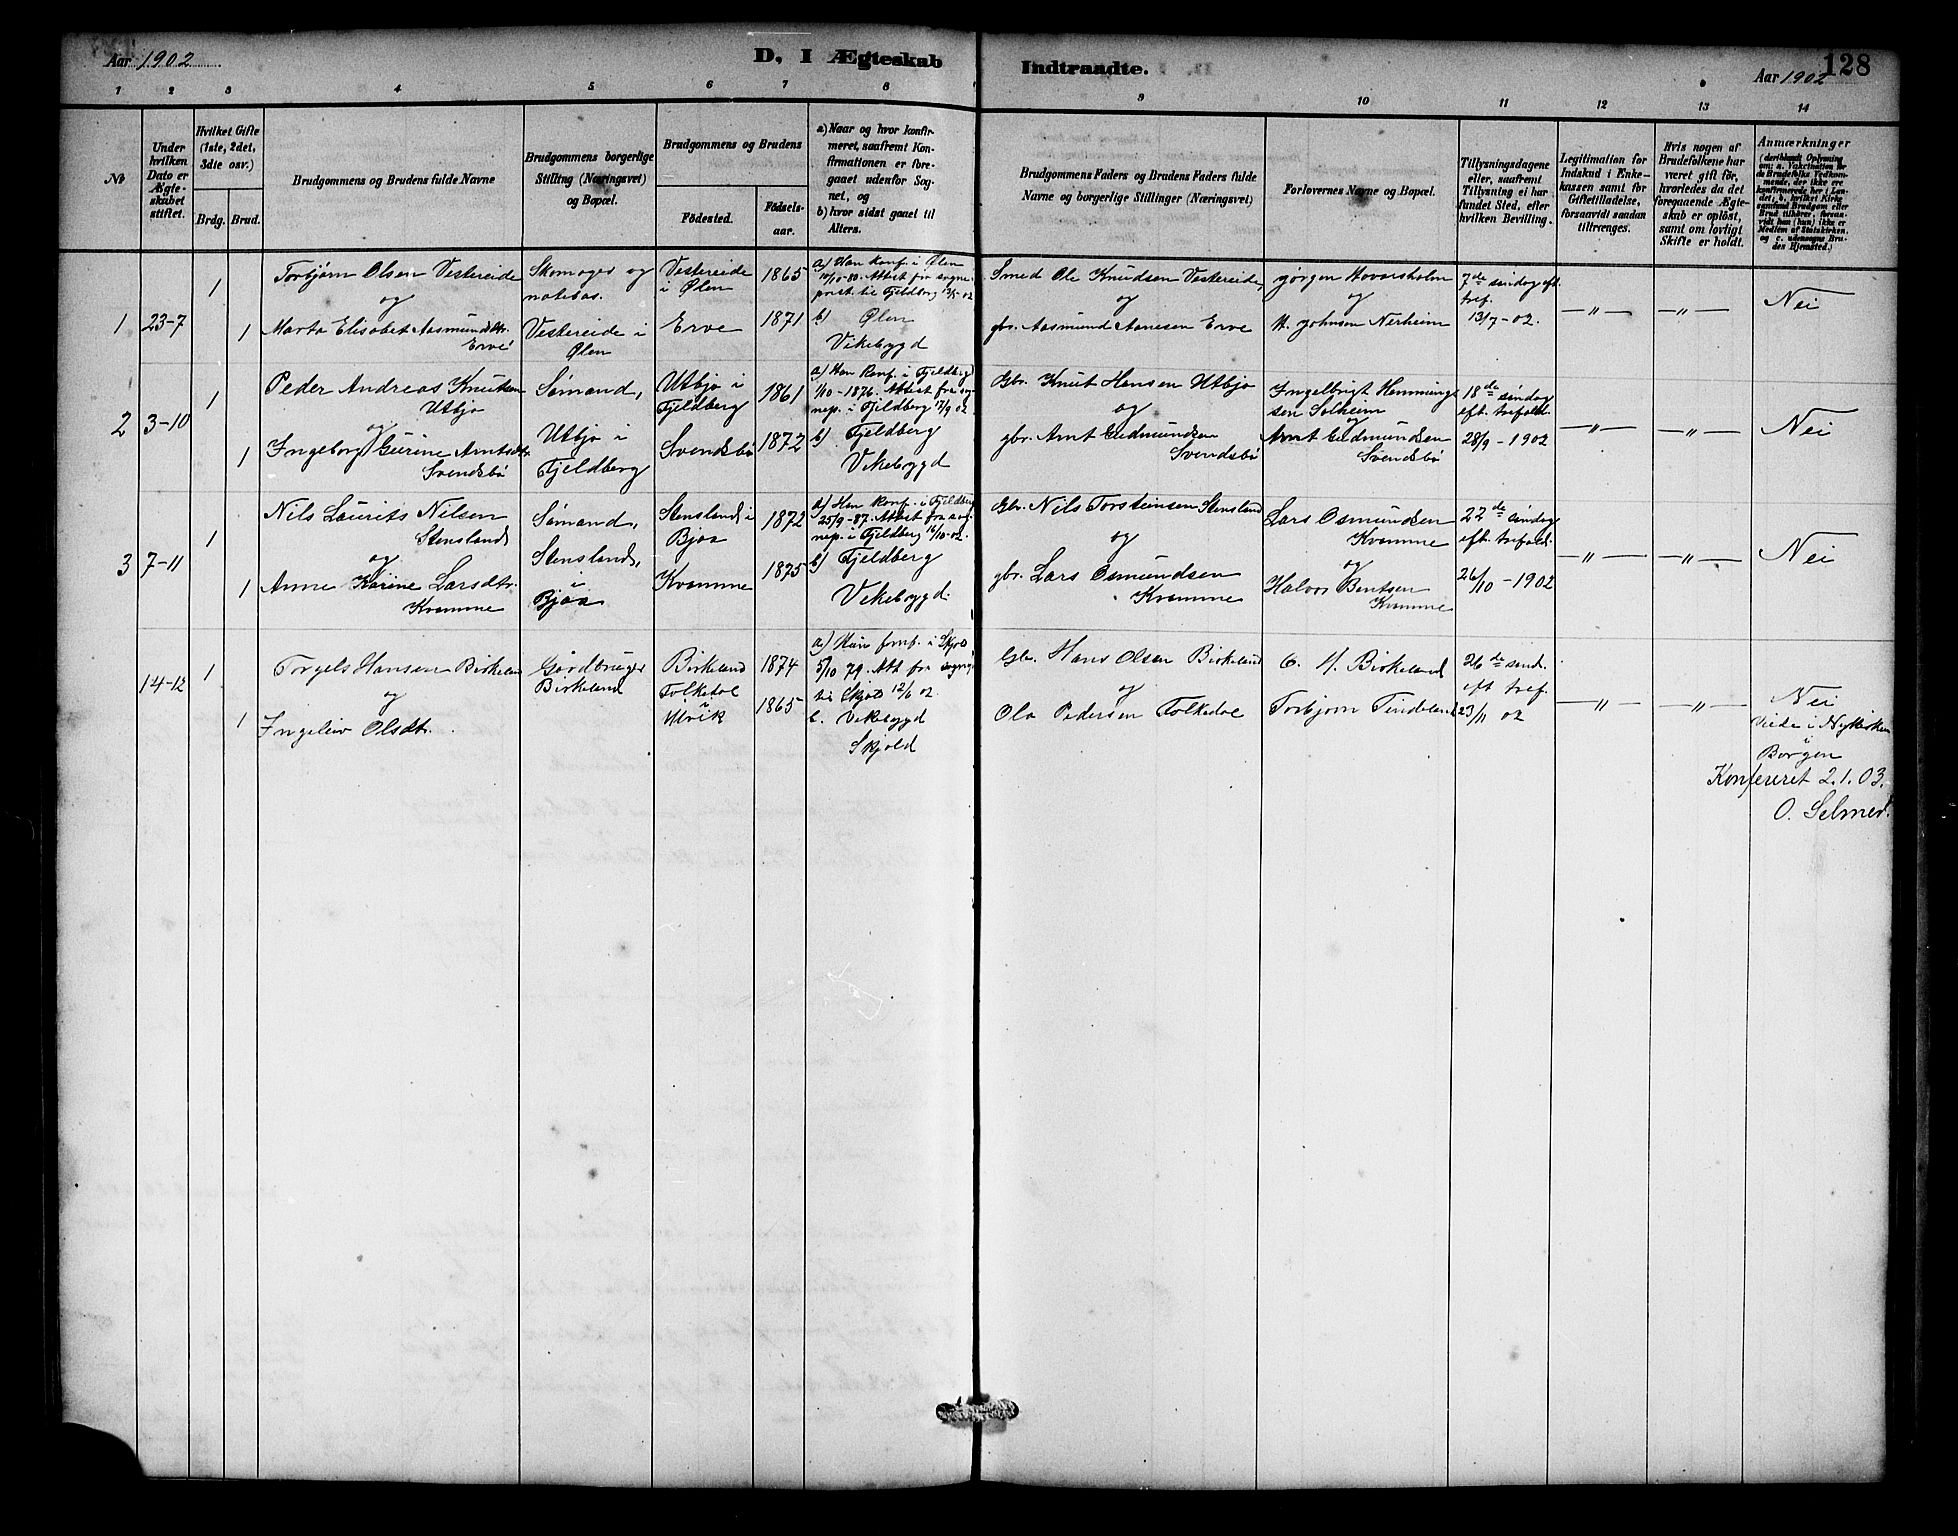 Aar 1902
D, I Ægteskab
Indtraadte.
128
Aar 1902
1 2 3 4 5 6 7 8
9 10 11 12 13 14
No
Under hvilken Dato er Ægteskabet stiftet.
Hvilket Gifte (1ste, 2det, 3die osv.)
Brdg. Brud.
Brudgommens og Brudens fulde Navne
Brudgommens borgerlige Stilling (Næringsvei) og Bopæl.
Brudgommens og Brudens
Födested.
Födselsaar.
a) Naar og hvor konfirmeret, saafremt Konfirmationen er foregaaet udenfor Sognet, og
b) hvor sidst gaaet til Alters.
Brudgommens Faders og Brudens Faders fulde Navne og borgerlige Stillinger (Næringsvei)
Forlovernes Navne og Bopæl.
Tillysningsdagene eller, saafremt Tillysning ei har fundet Sted, efter hvilken Bevilling.
Legitimation for Indskud i Enkekassen samt for Giftetilladelse, forsaavidt saadan tiltrænges.
Hvis nogen af Brudefolkene har været gift för, hvorledes da det foregaaende Ægteskab er oplöst, samt om lovligt Skifte er holdt.
Anmærkninger
(deriblandt Oplysning om: a. Vaksination for de Brudefolks Vedkommende, der ikke ere konfirmerede her i Landet, b. hvilket Kirkesamfund Brudgom eller Brud tilhörer, forsaavidt han (hun) ikke er Medlem af Statskirken, og c. udensogns Brudes Hjemsted.)
1 23-7
1
1
Torbjørn Olsen Vestereide
og
Marta Elisabet Aasmundsdtr.
Erve
Skomager og
notebas.
Vestereide i
Ølen
Vestereide
i Ølen
Erve
1865
1871
a) Han konf. i Ølen
10/10-80. Attest fra sogne
prest. til Fjeldberg
b) Ølen
Vikebygd
Smed Ole Knudsen Vestereide,
og
gbr. Aasmund Aanesen Erve
Jørgen Hovarsholm
og
Johnsen Nerheim
7de søndag eft.
tref.
13/7-02.
—"—
—"—
Nei
2 3-10
1
1
Peder Andreas Knutsen
Utbjo
og
Ingeborg Gurine Arntsdtr
Svendsbø
Sømand,
Utbjo i
Fjeldberg
Utbjo i
Fjeldberg
Svendsbø
1861
1872
a) Han konf. i Fjeldberg
1/10-1876. Attest fra sog
nep. i Fjeldberg 17/9 02.
b) Fjeldberg
Vikebygd
Gbr. Knut Hansen Utbjo
og
gbr. Arnt Gudmundsen
Svendsbø
Ingelbrigt Hemming
sen Solheim
og
Arnt Gudmundsen
Svendsbø
18de søndag
eft. trefold.
28/9-1902
—"—
—"—
Nei
3 7-11
1
1
Nils Laurits Nilsen
Stensland
og
Anne Karine Larsdtr.
Kvamme
Sømand,
Stensland,
i
Bjoa
Stensland i
Bjoa
Kvamme
1872
1875
a) Han konf. i Fjeldberg
25/9-87. Attest fra sog
nep. i Fjeldberg 16/10-02.
b) Fjeldberg
Vikebygd.
Gbr. Nils Torsteinsen Stensland
og
gbr. Lars Osmundsen
Kvamme
Lars Osmundsen
Kvamme
og
Halvor Bentsen
Kvamme
22de søndag
eft. trefold.
26/10-1902
—"—
—"—
Nei
14-12
1
1
Torgels Hansen Birkeland
og
Ingeleiv Olsdtr.
Gardbruger
Birkeland
Birkeland
Folkedal
i
Ulvik
1874
1865
a) Hun konf. i Skjold
5/10 79. Att fra
til Skjold 12/6 02.
b. Vikebygd
Skjold
Gbr. Hans Olsen Birkeland
og
Ola Pedersen Folkedal
O. H. Birkeland
Torbjørn Tindeland
26de sønd.
eft tref.
23/11 02
—"—
—"—
Nei
Viede i Nykirken
i
Bergen
Konfereret 2.1.03.
O. Selmer.